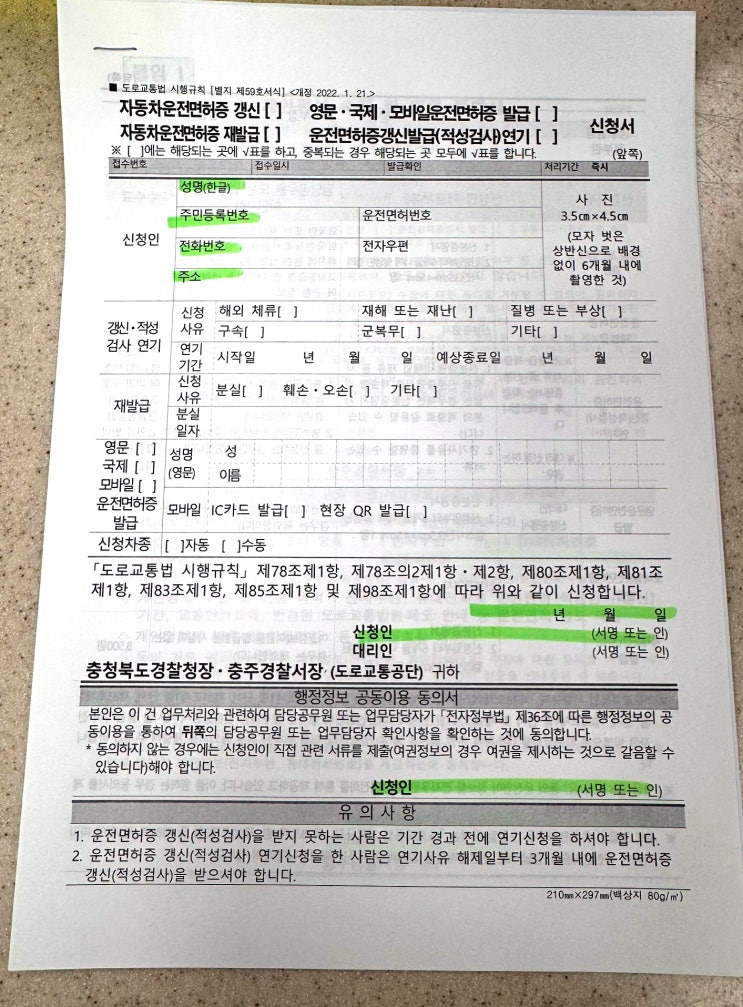 ■ 도로교통법 시행규칙 [별지 제59호서식] <개정 2022. 1. 21.>
자동차운전면허증 갱신 [ ] 영문·국제·모바일운전면허증 발급 [ ]
자동차운전면허증 재발급 [ ] 운전면허증갱신발급(적성검사)연기 [ ]
신청서
※ [ ]에는 해당되는 곳에 √표를 하고, 중복되는 경우 해당되는 곳 모두에 √표를 합니다. (앞쪽)
접수번호 접수일시 발급확인 처리기간 즉시
신청인
성명(한글)
주민등록번호 운전면허번호
전화번호 전자우편
주소
사 진
3.5㎝×4.5㎝
(모자 벗은
상반신으로 배경
없이 6개월 내에
촬영한 것)
갱신·적성
검사 연기
신청
사유
해외 체류[ ] 재해 또는 재난[ ] 질병 또는 부상[ ]
구속[ ] 군복무[ ] 기타[ ]
연기
기간
시작일 년 월 일 예상종료일 년 월 일
재발급
신청
사유
분실[ ] 훼손·오손[ ] 기타[ ]
분실
일자
영문 [ ]
국제 [ ]
모바일 [ ]
운전면허증
발급
성명
(영문)
성
이름
모바일 IC카드 발급[ ] 현장 QR 발급[ ]
신청차종 [ ]자동 [ ]수동
「도로교통법 시행규칙」 제78조제1항, 제78조의2제1항·제2항, 제80조제1항, 제81조
제1항, 제83조제1항, 제85조제1항 및 제98조제1항에 따라 위와 같이 신청합니다.
년 월 일
신청인 (서명 또는 인)
대리인 (서명 또는 인)
충청북도경찰청장·충주경찰서장 (도로교통공단) 귀하
행정정보 공동이용 동의서
본인은 이 건 업무처리와 관련하여 담당공무원 또는 업무담당자가 「전자정부법」 제36조에 따른 행정정보의 공
동이용을 통하여 뒤쪽의 담당공무원 또는 업무담당자 확인사항을 확인하는 것에 동의합니다.
* 동의하지 않는 경우에는 신청인이 직접 관련 서류를 제출(여권정보의 경우 여권을 제시하는 것으로 갈음할 수
있습니다)해야 합니다.
신청인 (서명 또는 인)
유 의 사 항
1. 운전면허증 갱신(적성검사)을 받지 못하는 사람은 기간 경과 전에 연기신청을 하셔야 합니다.
2. 운전면허증 갱신(적성검사) 연기신청을 한 사람은 연기사유 해제일부터 3개월 내에 운전면허증
갱신(적성검사)을 받으셔야 합니다.
210㎜×297㎜(백상지 80g/㎡)